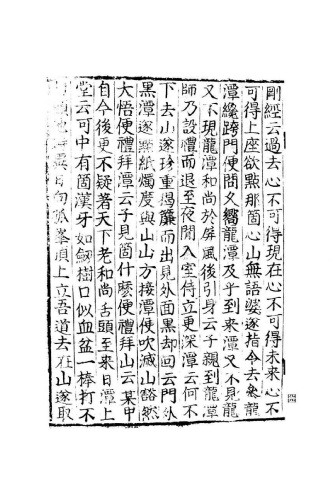 剛經云過去心不可得現在心不可得未來心不
可得上座欲點那箇心山無語婆遂指令去參龍
潭纔跨門便問久嚮龍潭及乎到來潭又不見龍
又不現龍潭和尚於屏風後引身云子親到龍潭
師乃設禮而退至夜間入室侍立更深潭云何不
下去山遂珍重揭簾而出見外面黑却回云門外
黑潭遂點紙燭度與山山方接潭便吹滅山豁然
大悟便禮拜潭云子見箇什麼便禮拜山云某甲
自今後更不疑著天下老和尚舌頭至來日潭上
堂云可中有箇漢牙如劒樹口似血盆一棒打不
異日向孤峯頂上立吾道去在山遂取